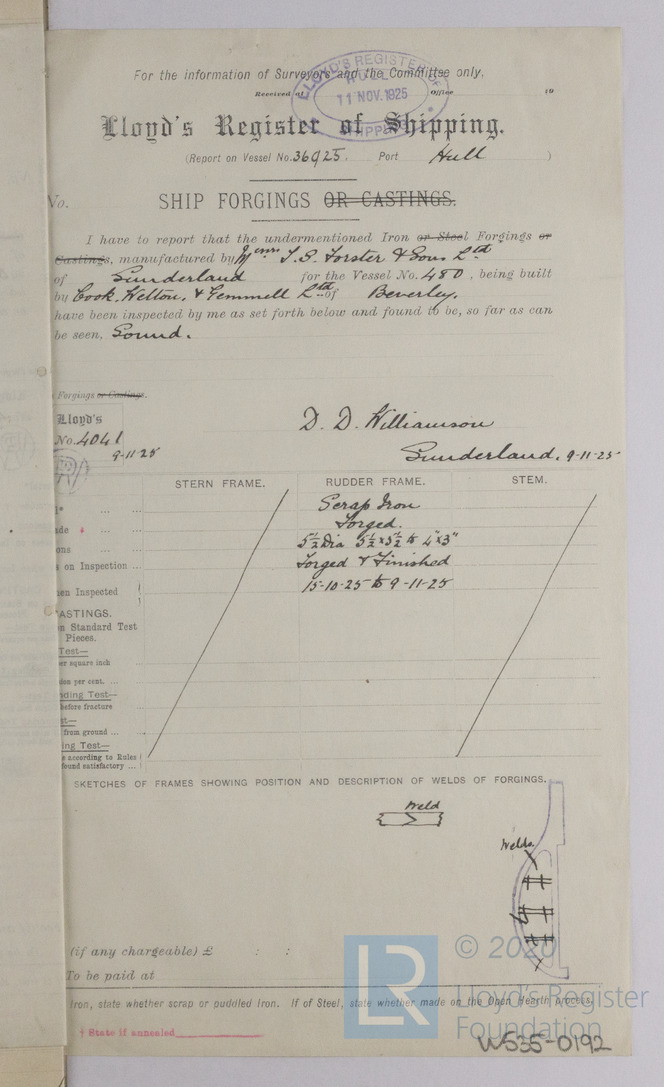 For the information of Surveyors and the Committee only.
Received at Office 19
LLOYD'S REGISTER OF SHIPPING
HULL
11 NOV. 1925
Lloyd's Register of Shipping.
(Report on Vessel No. 36925. Port Hull )
No.
SHIP FORGINGS OR CASTINGS.
I have to report that the undermentioned Iron or Steel Forgings or
Castings, manufactured by Messrs T. S. Forster & Sons Ltd
of Sunderland for the Vessel No. 480, being built
by Cook, Welton, & Gemmell Ltd of Beverley.
have been inspected by me as set forth below and found to be, so far as can
be seen, Sound.
Forgings or Castings.
Lloyd's
No. 4041
9-11-25
D. D. Williamson
Sunderland. 9-11-25
STERN FRAME. RUDDER FRAME. STEM.
Scrap Iron
Forged.
5½ Dia 5½ x 5½ to 4" x 3"
s on Inspection ... Forged & Finished
en Inspected 15-10-25 to 9-11-25
CASTINGS.
n Standard Test
Pieces.
Test—
er square inch
ion per cent. ...
nding Test—
before fracture
st—
from ground ...
ing Test—
e according to Rules
found satisfactory ...
SKETCHES OF FRAMES SHOWING POSITION AND DESCRIPTION OF WELDS OF FORGINGS.
Weld
Welds.
(if any chargeable) £ : :
To be paid at
Iron, state whether scrap or puddled iron. If of Steel, state whether made on the Open Hearth process.
† State if annealed
LR
© 2020
Lloyd's Register
Foundation
W535-0192